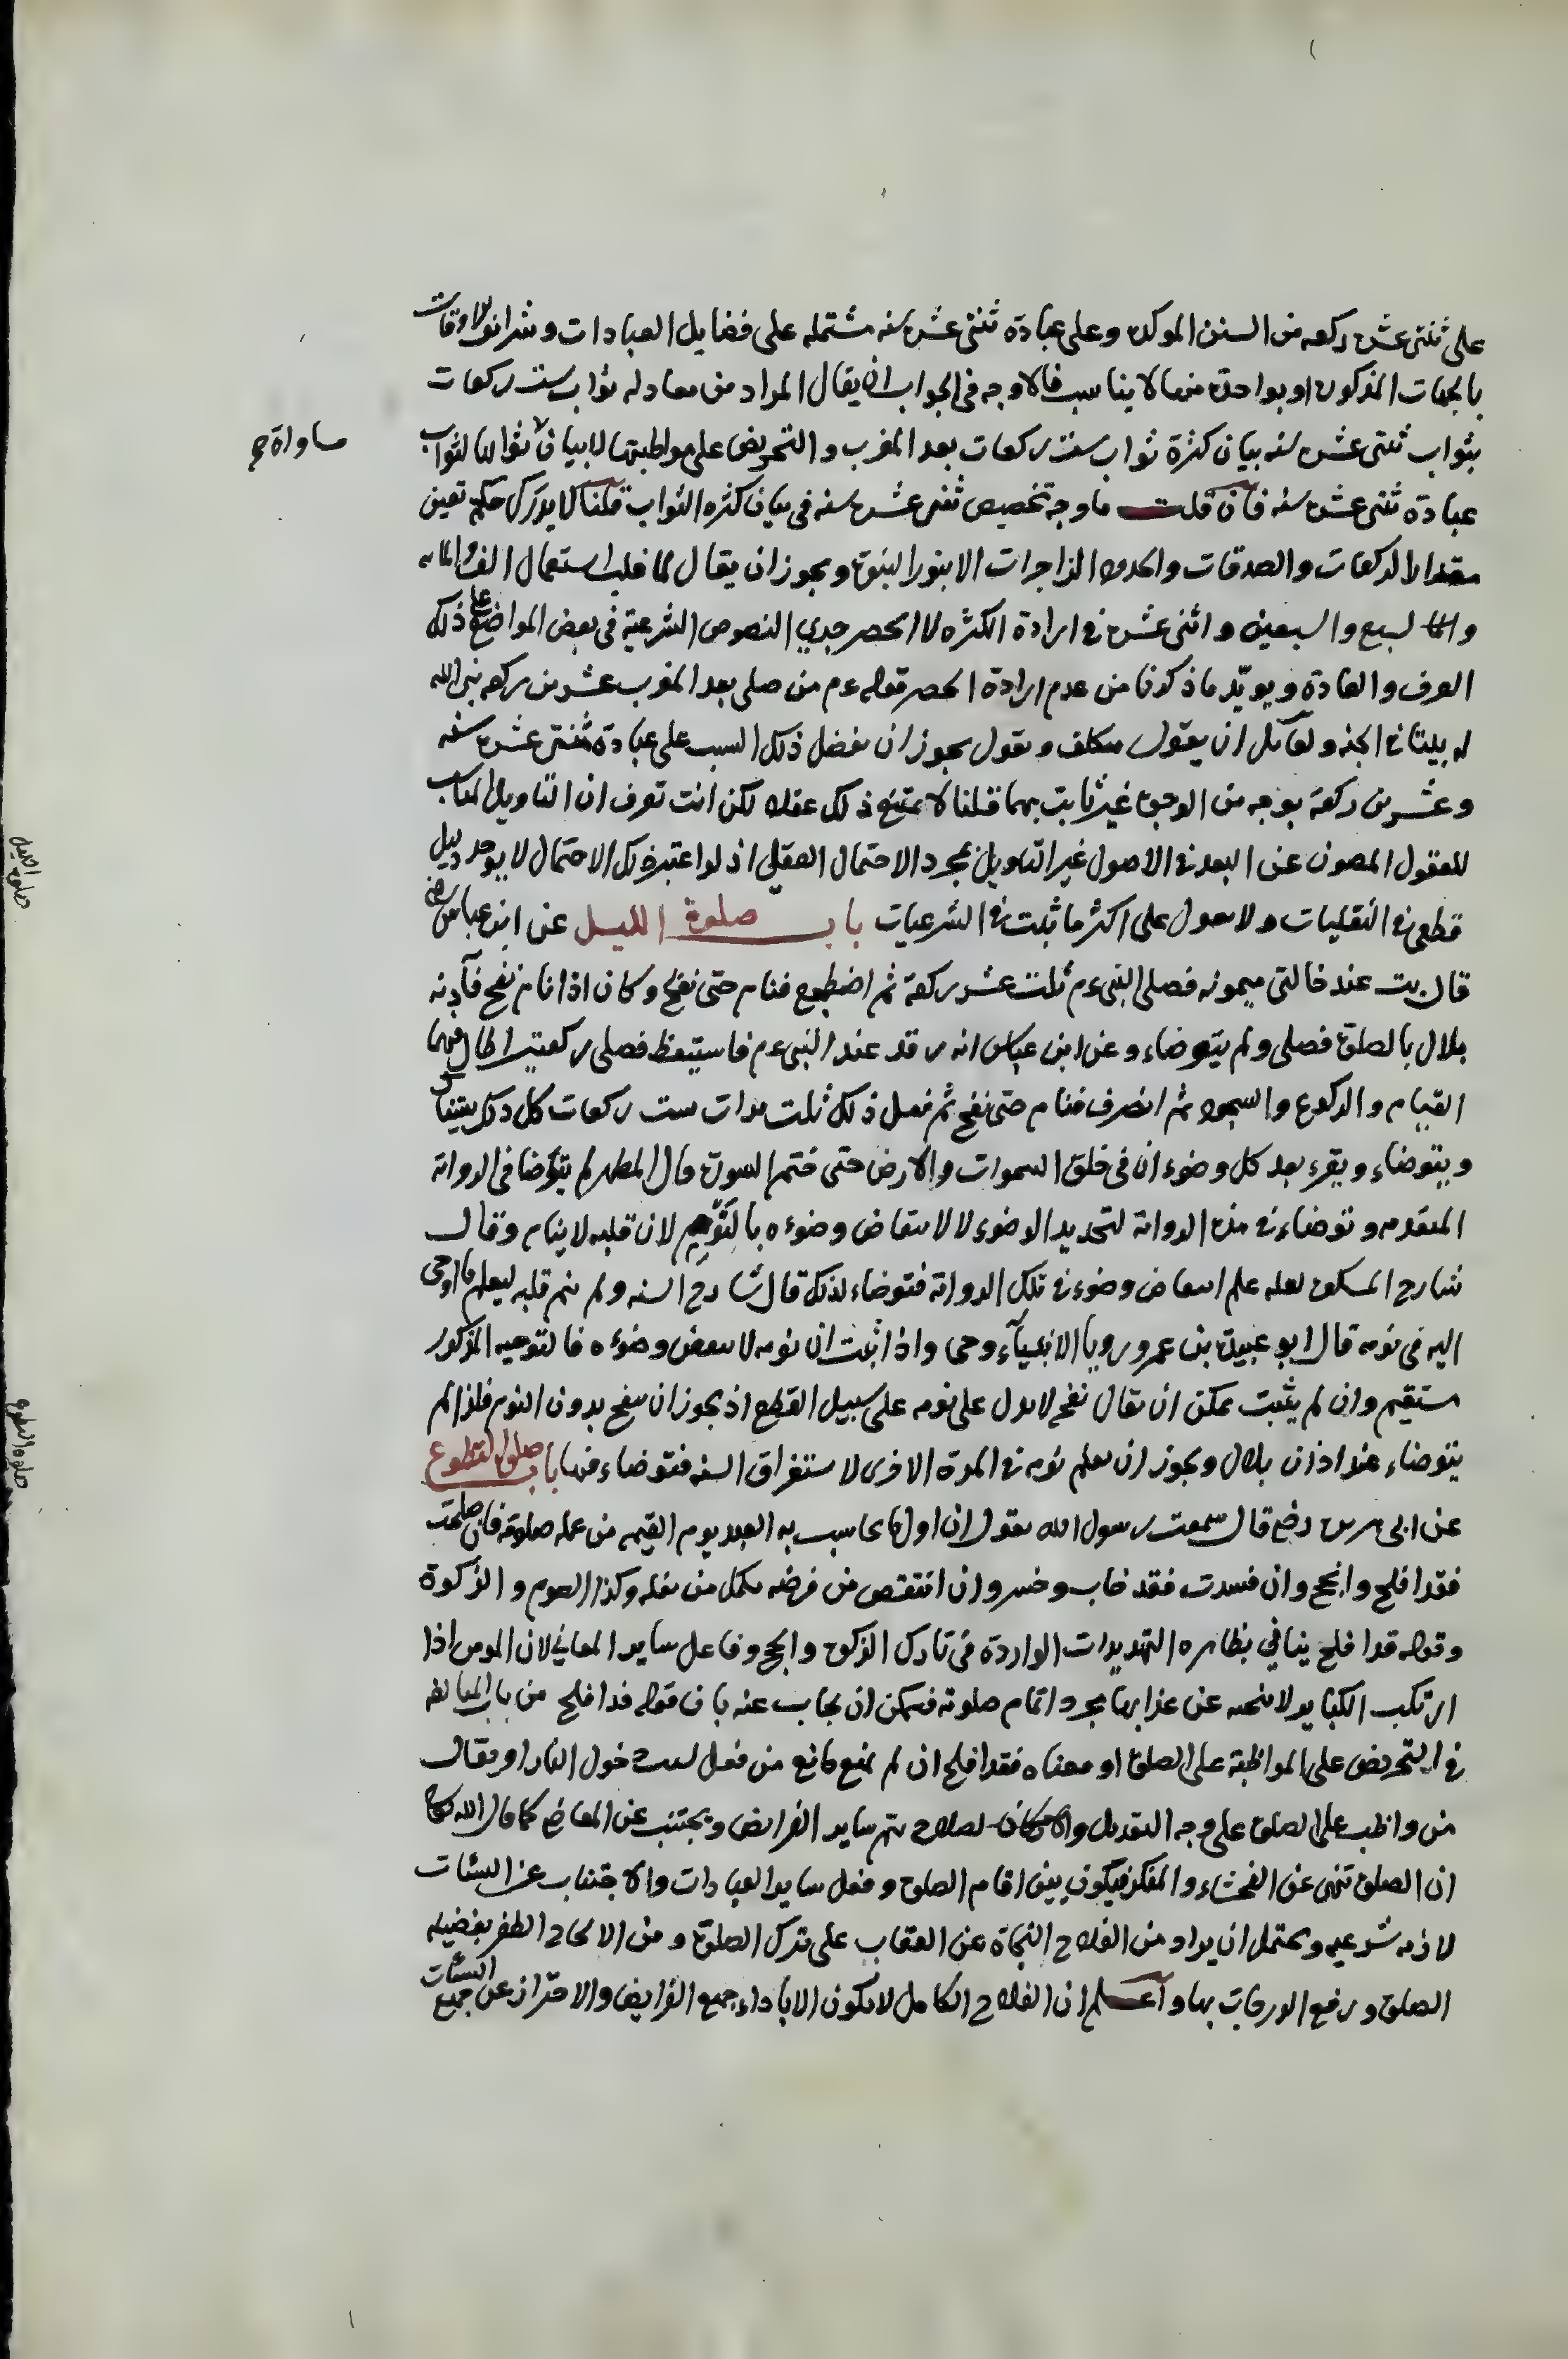 على ثنتى عشرة ركعه من السنن الموكدة وعلى عبادة ثنتى عشرة سنه مشتمله على فضايل العبادات وشرائف الاوقات
بالجهات المذكورة او بواحدة منها لا يناسب فالاوجه فى الجواب ان يقال المراد من معادله ثواب ست ركعات
بثواب ثنتى عشرة سنه بيان كثرة ثواب ست ركعات بعد المغرب و التحريض على مواظبتها لا بيان ثوابها لثواب
مساواة صح
عبادة ثنتى عشرة سنه فان قلت ما وجه تخصيص ثنتى عشرة سنه فى بيان كثره الثواب قلنا لا يدرك حكم تعين
مقدار الركعات و الصدقات والحدود الزاجرات الا بنور النبوة و يجوز ان يقال لما غلب استعمال الف والمايه
والسبع و السبعين و اثنى عشرة فى ارادة الكثره لا الحصر جرى النصوص الشرعية فى بعض المواضع على ذلك
العرف و العادة و يويّد ما ذكرنا من عدم ارادة الحصر قوله عم من صلى بعد المغرب عشرين ركعه بنى الله
له بيتا فى الجنه ولقائل ان يقول متكلف و يقول يجوز ان يفضل ذلك السبب على عبادة ثنتى عشرة سنه
و عشرين ركعة بوجه من الوجوه غير ثابت بهما قلنا لا يمتنع ذلك عقلا لكن انت تعرف ان التاويل المناسب
للعقول المصون عن البعد فى الاصول غير التاويل بمجرد الاحتمال العقلى اذ لو اعتبر ذلك الاحتمال لا يوجد دليل
قطعى فى النقليات ولا معول على اكثر ما ثبت فى الشرعيات باب صلوة الليل عن ابن عباس رضى
صلوة الليل
قال بت عند خالتى ميمونه فصلى النبى عم ثلث عشر ركعة ثم اضطجع فنام حتى نفخ وكان اذا نام نفخ فآذنه
بلال بالصلوة فصلى و لم يتوضاء و عن ابن عباس انه رقد عند النبى عم فاستيقظ فصلى ركعتين اطال فيهما
القيام و الركوع و السجود ثم انصرف فنام حتى نفخ ثم فعل ذلك ثلث مرات ست ركعات كل ذلك يستاك
و يتوضاء و يقرء بعد كل وضوء ان فى خلق السموات والارض حتى ختم السورة قال المطهر لم يتوضا فى الرواية
المتقدمه و توضاء فى هذه الرواية لتجديد الوضوء لا لانتقاض وضوءه بالنوم لان قلبه لا ينام وقال
شارح المشكوة لعله علم انتقاض وضوء فى تلك الرواية فتوضاء لذلك قال شارح السنه و لم ينم قلبه ليعلم ما اوحى
اليه فى نومه قال ابو عبيدة بن عمرو رويا الانبياء وحى واذا ثبت ان نومه لا ينقض وضوءه فالتوجيه المذكور
مستقيم وان لم يثبت يمكن ان يقال نفخه لا يدل على نومه على سبيل القطع اذ يجوز ان ينفخ بدون النوم فلذا لم
يتوضاء عند اذان بلال و يجوز ان يعلم نومه فى المرة الاخرى لاستغراق السنه فتوضاء فيها باب صلوة التطوع
صلوة التطوع
عن ابى هريرة رضع قال سمعت رسول الله يقول ان اول ما يحاسب به العبد يوم القيمه من عمله صلاوته فان صلحت
فقد افلح وانجح وان فسدت فقد خاب و خسر و ان انتقص من فرضه يكمل من نفله وكذا الصوم و الزكوة
وقوله قد افلح ينافى بظاهره التهديدات الواردة فى تارك الزكوة والحج وفاعل ساير المعاصى لان المومن اذا
ارتكب الكباير لا ينجيه عن عذابها مجرد اتمام صلوته فيمكن ان يجاب عنه بان قوله قد افلح من باب المبالغه
فى التحريض على المواظبة على الصلوة او معناه فقد افلح ان لم يمنع مانع من فعل لسبب دخول النار او يقال
من واظب على الصلوة على وجه التعديل والامكان لصلاح يتم ساير الفرايض ويجتنب عن المعاصى كما قال الله تعالى
ان الصلوة تنهى عن الفحشاء و المنكر فيكون بين اقام الصلوة و فعل ساير العبادات والاجتناب عن السيئات
ملازمه شرعيه و يحتمل ان يراد من الفلاح النجاة عن العقاب على ترك الصلوة و من الانجاح الظفر بفضيله
الصلوة و رفع الدرجات بها و اعلم ان الفلاح الكامل لا يكون الا باداء جميع الفرايض والاحتراز عن جميع السيئات